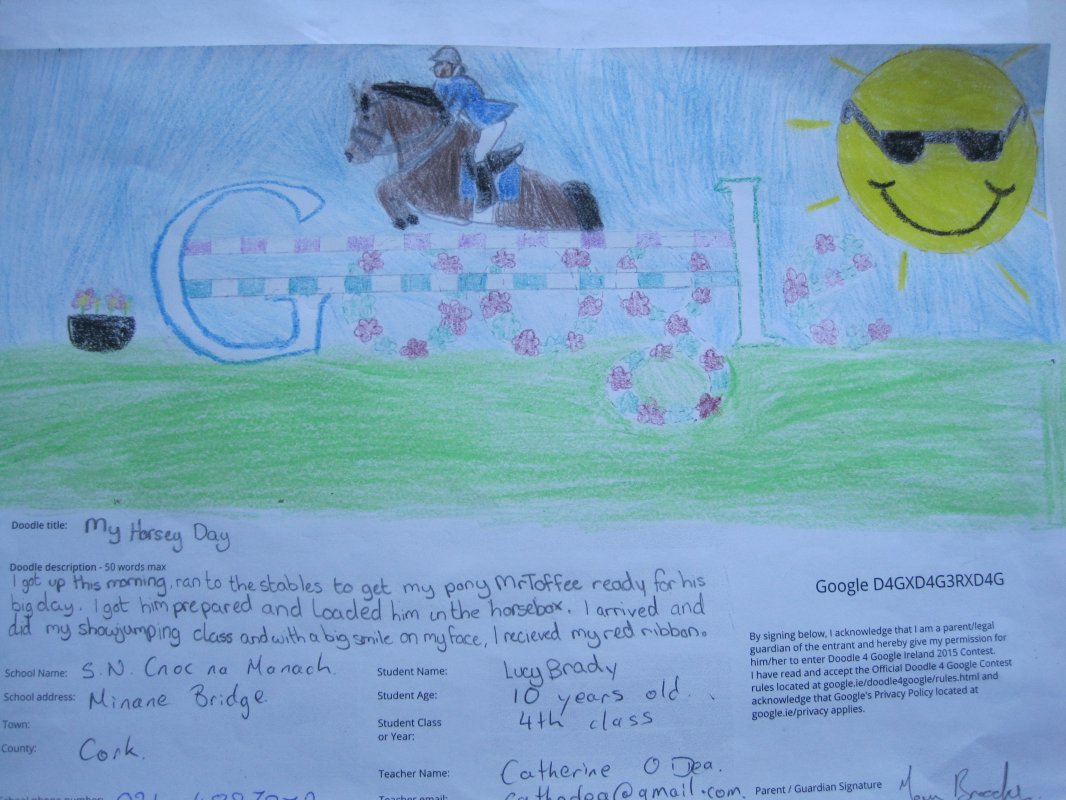 Google
Doodle title: My Horsey Day
Doodle description - 50 words max
I got up this morning, ran to the stables to get my pony MrToffee ready for his
big day. I got him prepared and loaded him in the horsebox. I arrived and
did my showjumping class and with a big smile on my face, I recieved my red ribbon.
Google D4GXD4G3RXD4G
By signing below, I acknowledge that I am a parent/legal
guardian of the entrant and hereby give my permission for
him/her to enter Doodle 4 Google Ireland 2015 Contest.
I have read and accept the Official Doodle 4 Google Contest
rules located at google.ie/doodle4google/rules.html and
acknowledge that Google's Privacy Policy located at
google.ie/privacy applies.
School Name: S.N. Cnoc na Manach.
School address: Minane Bridge
Town:
County: Cork.
Student Name: Lucy Brady
Student Age: 10 years old.
Student Class 4th class
or Year:
Teacher Name: Catherine O Dea.
Teacher email:
Parent / Guardian Signature